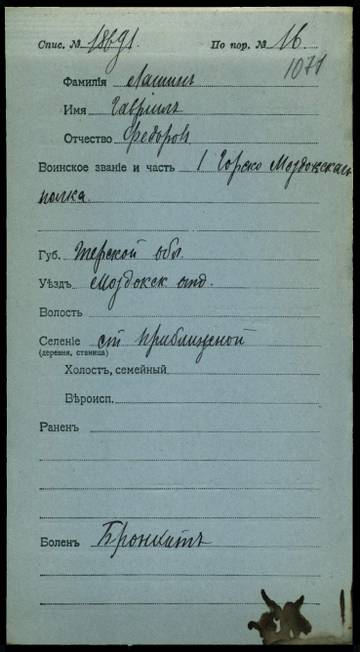 Спис. № 18691. По пор. № 16
1071
Фамилія Лашинъ
Имя Гавріилъ
Отчество Федоров.
Воинское званіе и часть 1 Горско Моздокскаго
полка.
Губ. Терской обл.
Уѣздъ Моздокск отд.
Волость
Селеніе ст Приближеной
(деревня, станица)
Холостъ, семейный
Вѣроисп.
Раненъ
Боленъ Бронхитъ